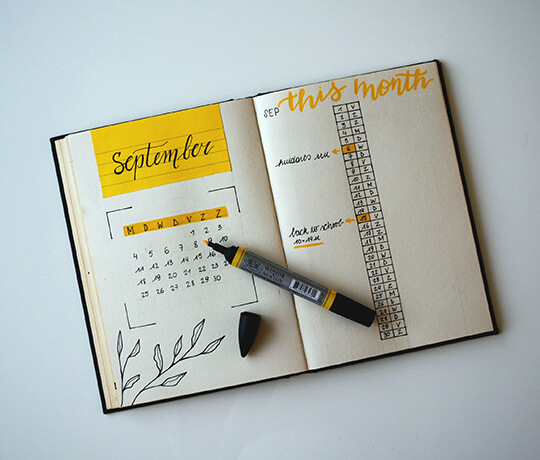 September
M D W D V Z Z
1 2 3
4 5 6 7 8 9 10
11 12 13 14 15
18 19 20 21 22 23
25 26 27 28 29 30
SEP this month
1 V
2 Z
3 Z
4 M
5 D
6 W
7 D
8 V
9 Z
10 Z
11 M
12 D
13 W
14 D
back to school 15 V
16 Z
17 Z
18 M
19 D
20 W
21 D
22 V
23 Z
24 Z
25 M
26 D
27 W
28 D
29 V
30 Z